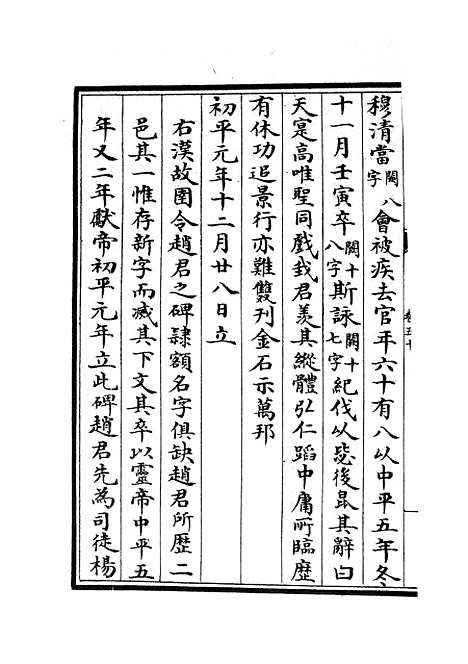 穆清當闕八字會被疾去官年六十有八以中平五年冬
十一月壬寅卒闕十八字斯詠闕十七字紀伐以毖後昆其辭曰
天寔高唯聖同戲我君羨其縱體弘仁蹈中庸所臨歷
有休功追景行亦難雙刊金石示萬邦
初平元年十二月廿八日立
右漢故圉令趙君之碑隷額名字俱缺趙君所歷二
邑其一惟存新字而滅其下文其卒以靈帝中平五
年又二年獻帝初平元年立此碑趙君先為司徒楊
卷五十